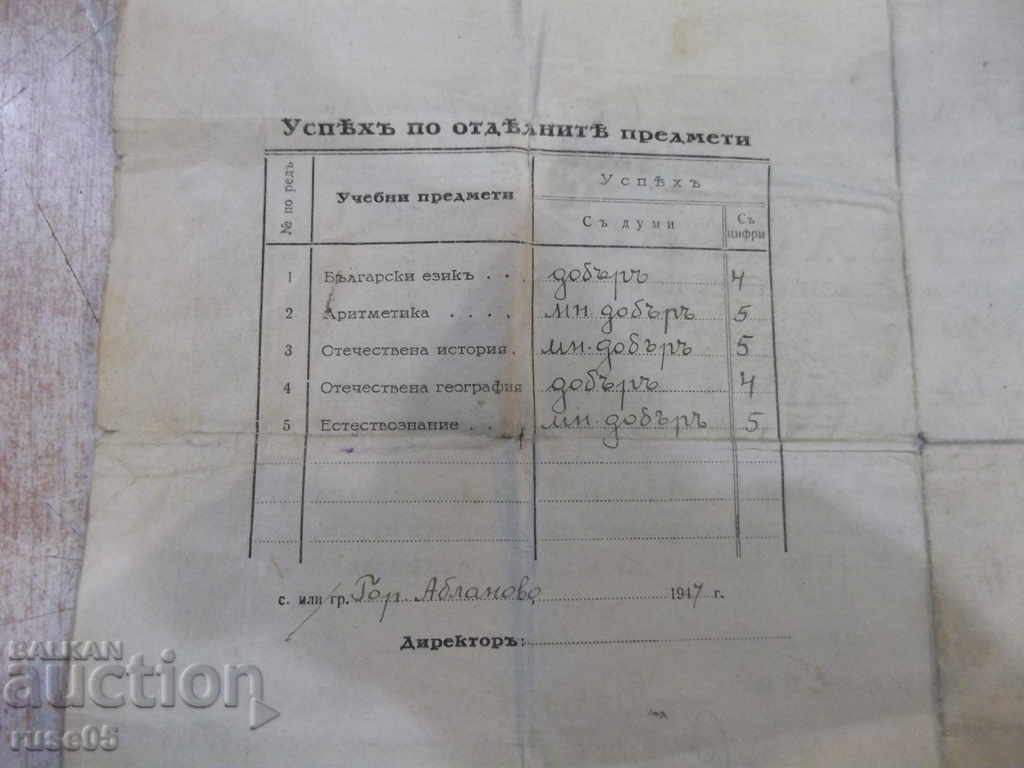 Успѣхъ по отдѣлнитѣ предмети
№ по редъ
Учебни предмети
Успѣхъ
Съ думи
Съ цифри
1 Български езикъ . . добъръ 4
2 Аритметика . . . . мн. добъръ 5
3 Отечествена история . мн. добъръ 5
4 Отечествена география добъръ 4
5 Естествознание . . . мн. добъръ 5
с. или гр. Гор. Абланово 1947 г.
Директоръ:
BALKAN
auction
ruse05